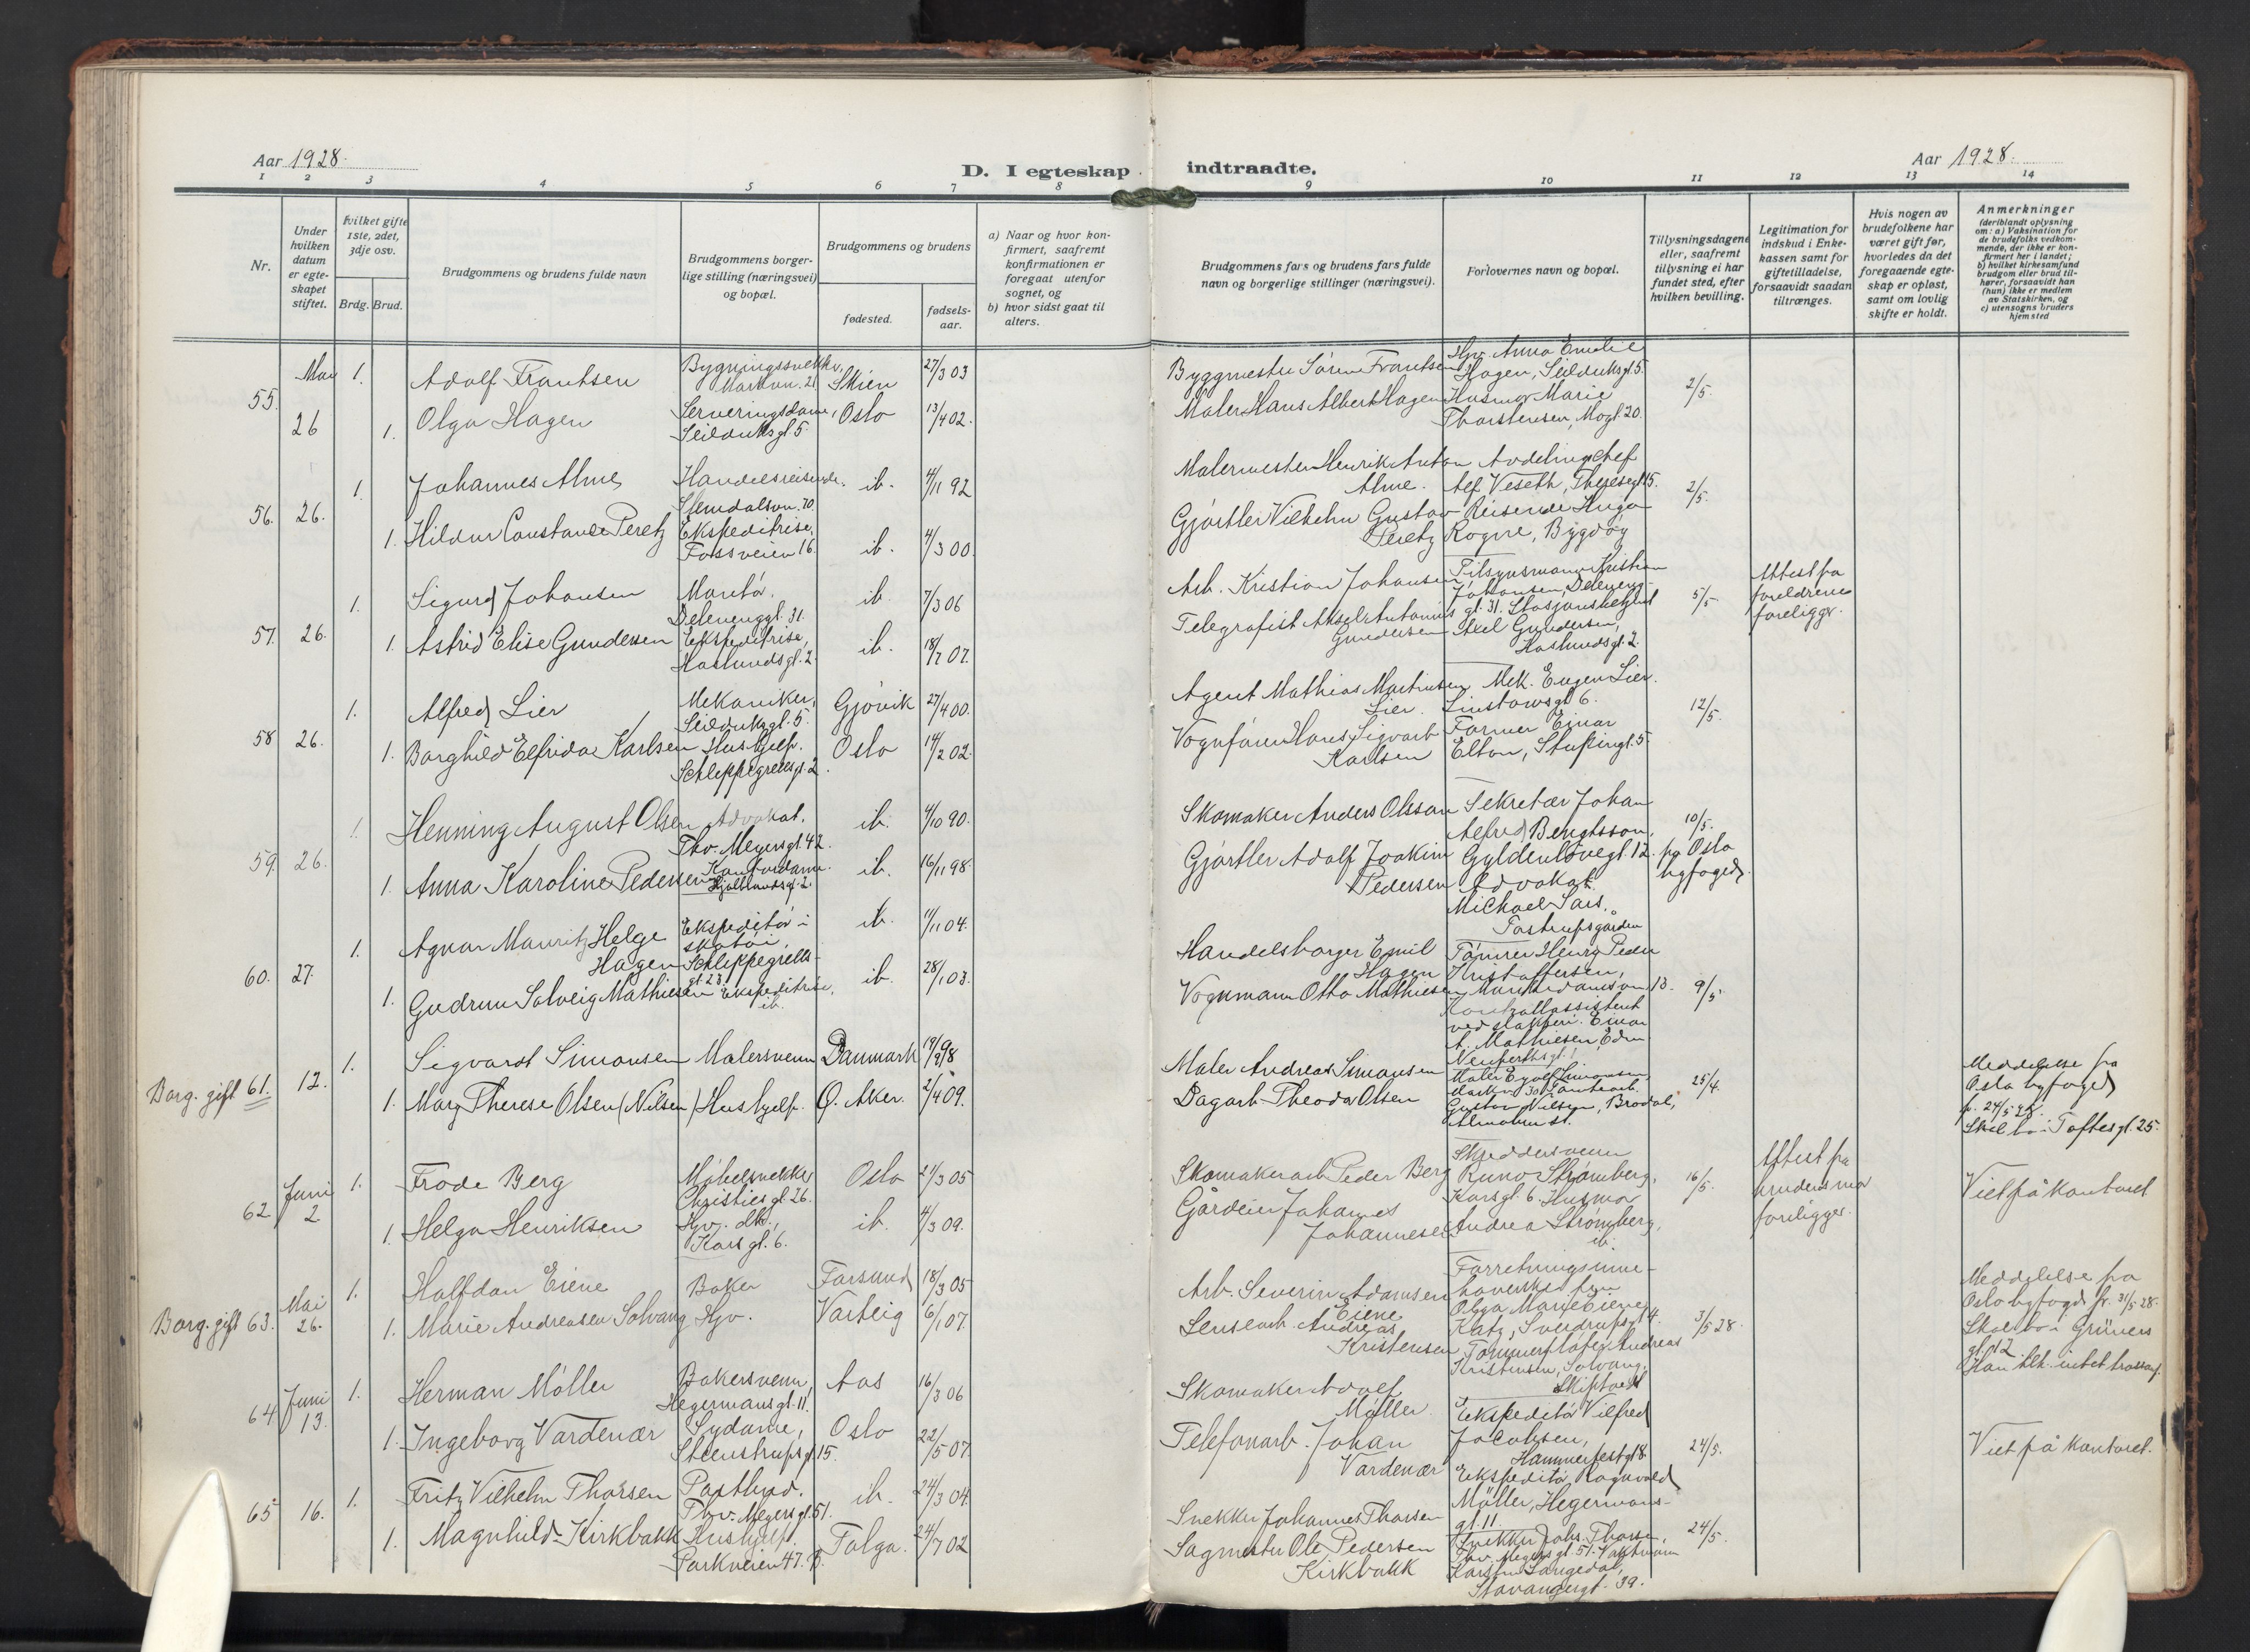 Aar 1928.
D. I egteskap indtraadte.
Aar 1928.
1 2 3 4 5 6 7 8 9 10 11 12 13 14
Nr.
Under hvilken datum er egteskapet stiftet.
Hvilket gifte 1ste, 2det, 3dje osv.
Brdg. Brud.
Brudgommens og brudens fulde navn
Brudgommens borgerlige stilling (næringsvei) og bopæl.
Brudgommens og brudens
fødested.
fødselsaar.
a) Naar og hvor konfirmert, saafremt konfirmationen er foregaat utenfor sognet, og
b) hvor sidst gaat til alters.
Brudgommens fars og brudens fars fulde navn og borgerlige stillinger (næringsvei).
Forlovernes navn og bopæl.
Tillysningsdagene eller, saafremt tillysning ei har fundet sted, efter hvilken bevilling.
Legitimation for indskud i Enkekassen samt for giftetilladelse, forsaavidt saadan tiltrænges.
Hvis nogen av brudefolkene har været gift før, hvorledes da det foregaaende egteskap er opløst, samt om lovlig skifte er holdt.
Anmerkninger
(deriblandt oplysning om: a) Vaksination for de brudefolks vedkommende, der ikke er konfirmert her i landet;
b) hvilket kirkesamfund brudgom eller brud tilhører, forsaavidt han (hun) ikke er medlem av Statskirken, og
c) utensogns bruders hjemsted
55. Mai 26
1. Adolf Frantsen Bygningssnekker, Markvn. 21 Skien 27/3 03 Byggmester Søren Frantsen Hgv. Anna Emelie Hagen, Seilduksgt. 5.
1. Olga Hagen Serveringsdame, Seilduksgt. 5. Oslo 13/4 02. Maler Hans Albert Hagen Husmor Marie Thorstensen, Mogt. 20. 2/5.
56. 26.
1. Johannes Alme Handelsreisende. ib. 4/11 92 Malermester Henrik Anton Alme. Avdelingschef Alf Veseth, Theresegt. 15. 2/5.
1. Hildur Constance Peretz Ekspeditrise, Fossveien 16. ib. 4/3 00. Gjørtler Vilhelm Gustav Peretz Reisende Hugo Rogne, Bygdøy
57. 26.
1. Sigurd Johansen Montør. Delenenggt. 31. ib. 7/3 06 Arb. Kristian Johansen Tilsynsmann Kristian Johansen, Deleneng- gt. 31. 5/5 Attest fra foreldrene foreligger.
1. Astrid Elise Gundersen Ekspeditrise, Haslundsgt. 2. ib. 18/7 07. Telegrafist Aksel Antonius Gundersen Axel Gundersen, Haslundsgt. 2
58 26.
1. Alfred Lier Mekaniker, Seilduksgt. 5. Gjøvik 27/4 00. Agent Mathias Martinsen Lier. Mek. Eugen Lier. Linstowsgt 6. 12/5.
1. Borghild Elfrida Karlsen Hushjelp. Schleppegrellsgt. 2. Oslo 14/2 02. Vognfører Hans Sigvart Karlsen Farmer Einar Elton,
59. 26.
1. Henning August Olsen Advokat. Thv. Meyersgt. 42. ib. 4/10 90. Skomaker Anders Olsson Sekretær Johan Alfred Bengtsson, Gyldenløvegt. 12. 10/5. fra Oslo byfoged.
1. Anna Karoline Pedersen Kontordame. ib. 16/11 98. Gjørtler Adolf Joakim Pedersen Advokat Michael Sars. Tostrupsgården
60. 27.
1. Agnar Mauritz Helge Hagen Ekspeditør i skotøi, Schleppegrells- gt. 23. ib. 11/11 04. Handelsborger Emil Hagen Tømrer Henry Peder Kristoffersen,
1. Gudrun Solveig Mathiesen Ekspeditrise, ib. ib. 28/1 03. Vognmann Otto Mathiesen Kontrollassistent ved slakteri. Einar A. Mathiesen Edv. Neupertsgt. 1 9/5.
Borg. gift 61. 12.
1. Sigvardt Simonsen Malersvenn Danmark Maler Andreas Simonsen Maler Eyolf Simonsen, Markvn 30
1. Mary Therese Olsen (Nilsen) Hushjelp. Ø. Aker. 2/4 09. Dagarb. Theodor Olsen Gustav Nilsen, Brodal, 25/4. Meddelelse fra Oslo byfoged fr. 24/5 28. Skal bo i Toftesgt. 25.
62 Juni 2
1. Frode Berg Møbelsnekker Christiesgt. 26. Oslo 21/3 05 Skomakerarb. Peder Berg Skreddersvenn Runo Strømberg, Karsgt. 6. 16/5. Attest fra brudens mor foreligger. Viet på kontoret
1. Helga Henriksen Hgv. dtr., Karsgt. 6. ib. 4/3 09. Gårdeier Johannes Johannesen Husmor Andrea Strømberg, ib.
Borg. gift 63. Mai 26.
1. Halfdan Eiene Baker Farsund 18/3 05 Arb. Severin Adamsen Eiene Forretningsinne- haverske fru Olga Marie Eiene Katz, Sverdrupsgt 4. 3/5 28. Meddelelse fra Oslo byfogd fr. 31/5 28. Skal bo i Grüners gt. 12
1. Marie Andreasen Solvang Hgv. Varteig 6/1 07. Lensearb. Andreas Kristensen Tømmerfløter Andreas Kristensen, Solvang. Skiptvedt
64 Juni 13.
1. Herman Möller Bakersvenn, Hegermansgt. 11. Aas 16/3 06 Skomaker Adolf Möller. Ekspeditør Vilfred Jacobsen, Hammerfestgt 8. 24/5. Viet på kontoret.
1. Ingeborg Vardenær Sydame, Steenstrupsgt. 15. Oslo 22/5 07. Telefonarb. Johan Vardenær Ekspeditør Ragnvald Möller, Hegermans- gt. 11.
65 16.
1. Fritz Vilhelm Thorsen Postbud. Thv. Meyersgt. 51. ib. 24/3 04. Snekker Johannes Thorsen Snekker Johs. Thorsen, Thv. Meyersgt. 51. 24/5.
1. Magnhild Kirkbakk Hushjelp. Parkveien 47. Tolga. 24/7 02 Sagmester Ole Pedersen Kirkbakk Karsten Langedal, Stavangergt. 39.